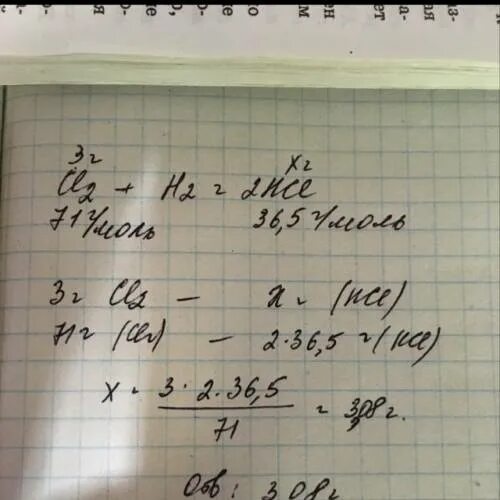 3г хг
Cl2 + H2 = 2HCl
71 г/моль 36,5 г/моль
3г Cl2 — х г (HCl)
71г (Cl2) — 2·36,5 г (HCl)
х = 3·2·36,5 / 71 = 3,08 г.
Отв: 3,08 г